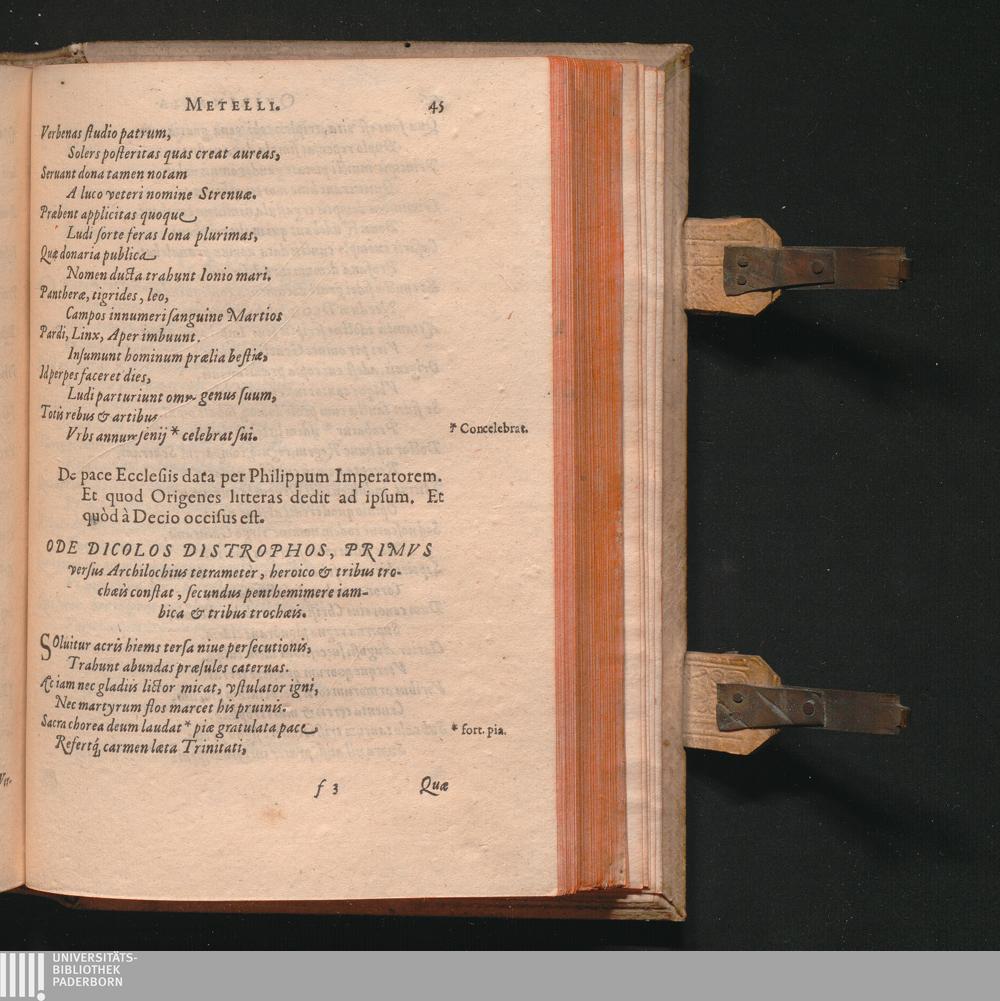 METELLI. 45
Verbenas ſtudio patrum,
Solers poſteritas quas creat aureas,
Seruant dona tamen notam
A luco veteri nomine Strenuæ.
Præbent applicitas quoque
Ludi ſorte feras Iona plurimas,
Quæ donaria publica
Nomen ducta trahunt Ionio mari.
Pantheræ, tigrides, leo,
Campos innumeri ſanguine Martios
Pardi, Linx, Aper imbuunt.
Inſumunt hominum prælia beſtiæ,
Id perpes faceret dies,
Ludi parturiunt omne genus ſuum,
Totis rebus & artibus
Vrbs annum ſenij * celebrat ſui.
* Concelebrat.
De pace Eccleſiis data per Philippum Imperatorem.
Et quod Origenes litteras dedit ad ipſum. Et
quòd à Decio occiſus eſt.
ODE DICOLOS DISTROPHOS, PRIMVS
verſus Archilochius tetrameter, heroico & tribus tro-
chæis conſtat, ſecundus penthemimere iam-
bica & tribus trochæis.
SOluitur acris hiems terſa niue perſecutionis,
Trahunt abundas præſules cateruas.
Ac iam nec gladiis lictor micat, vſtulator igni,
Nec martyrum flos marcet his pruinis.
Sacra chorea deum laudat * piæ gratulata pace
* fort. pia.
Refertq́; carmen læta Trinitati,
f 3 Quæ
Ver-
UNIVERSITÄTS-
BIBLIOTHEK
PADERBORN